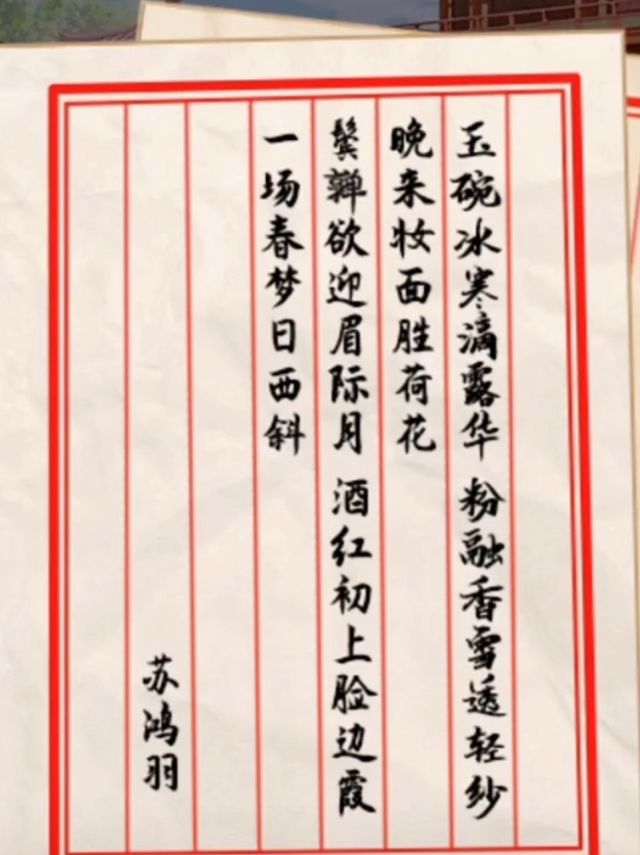 玉碗冰寒滴露华 粉融香雪透轻纱
晚来妆面胜荷花
鬓亸欲迎眉际月 酒红初上脸边霞
一场春梦日西斜
苏鸿羽